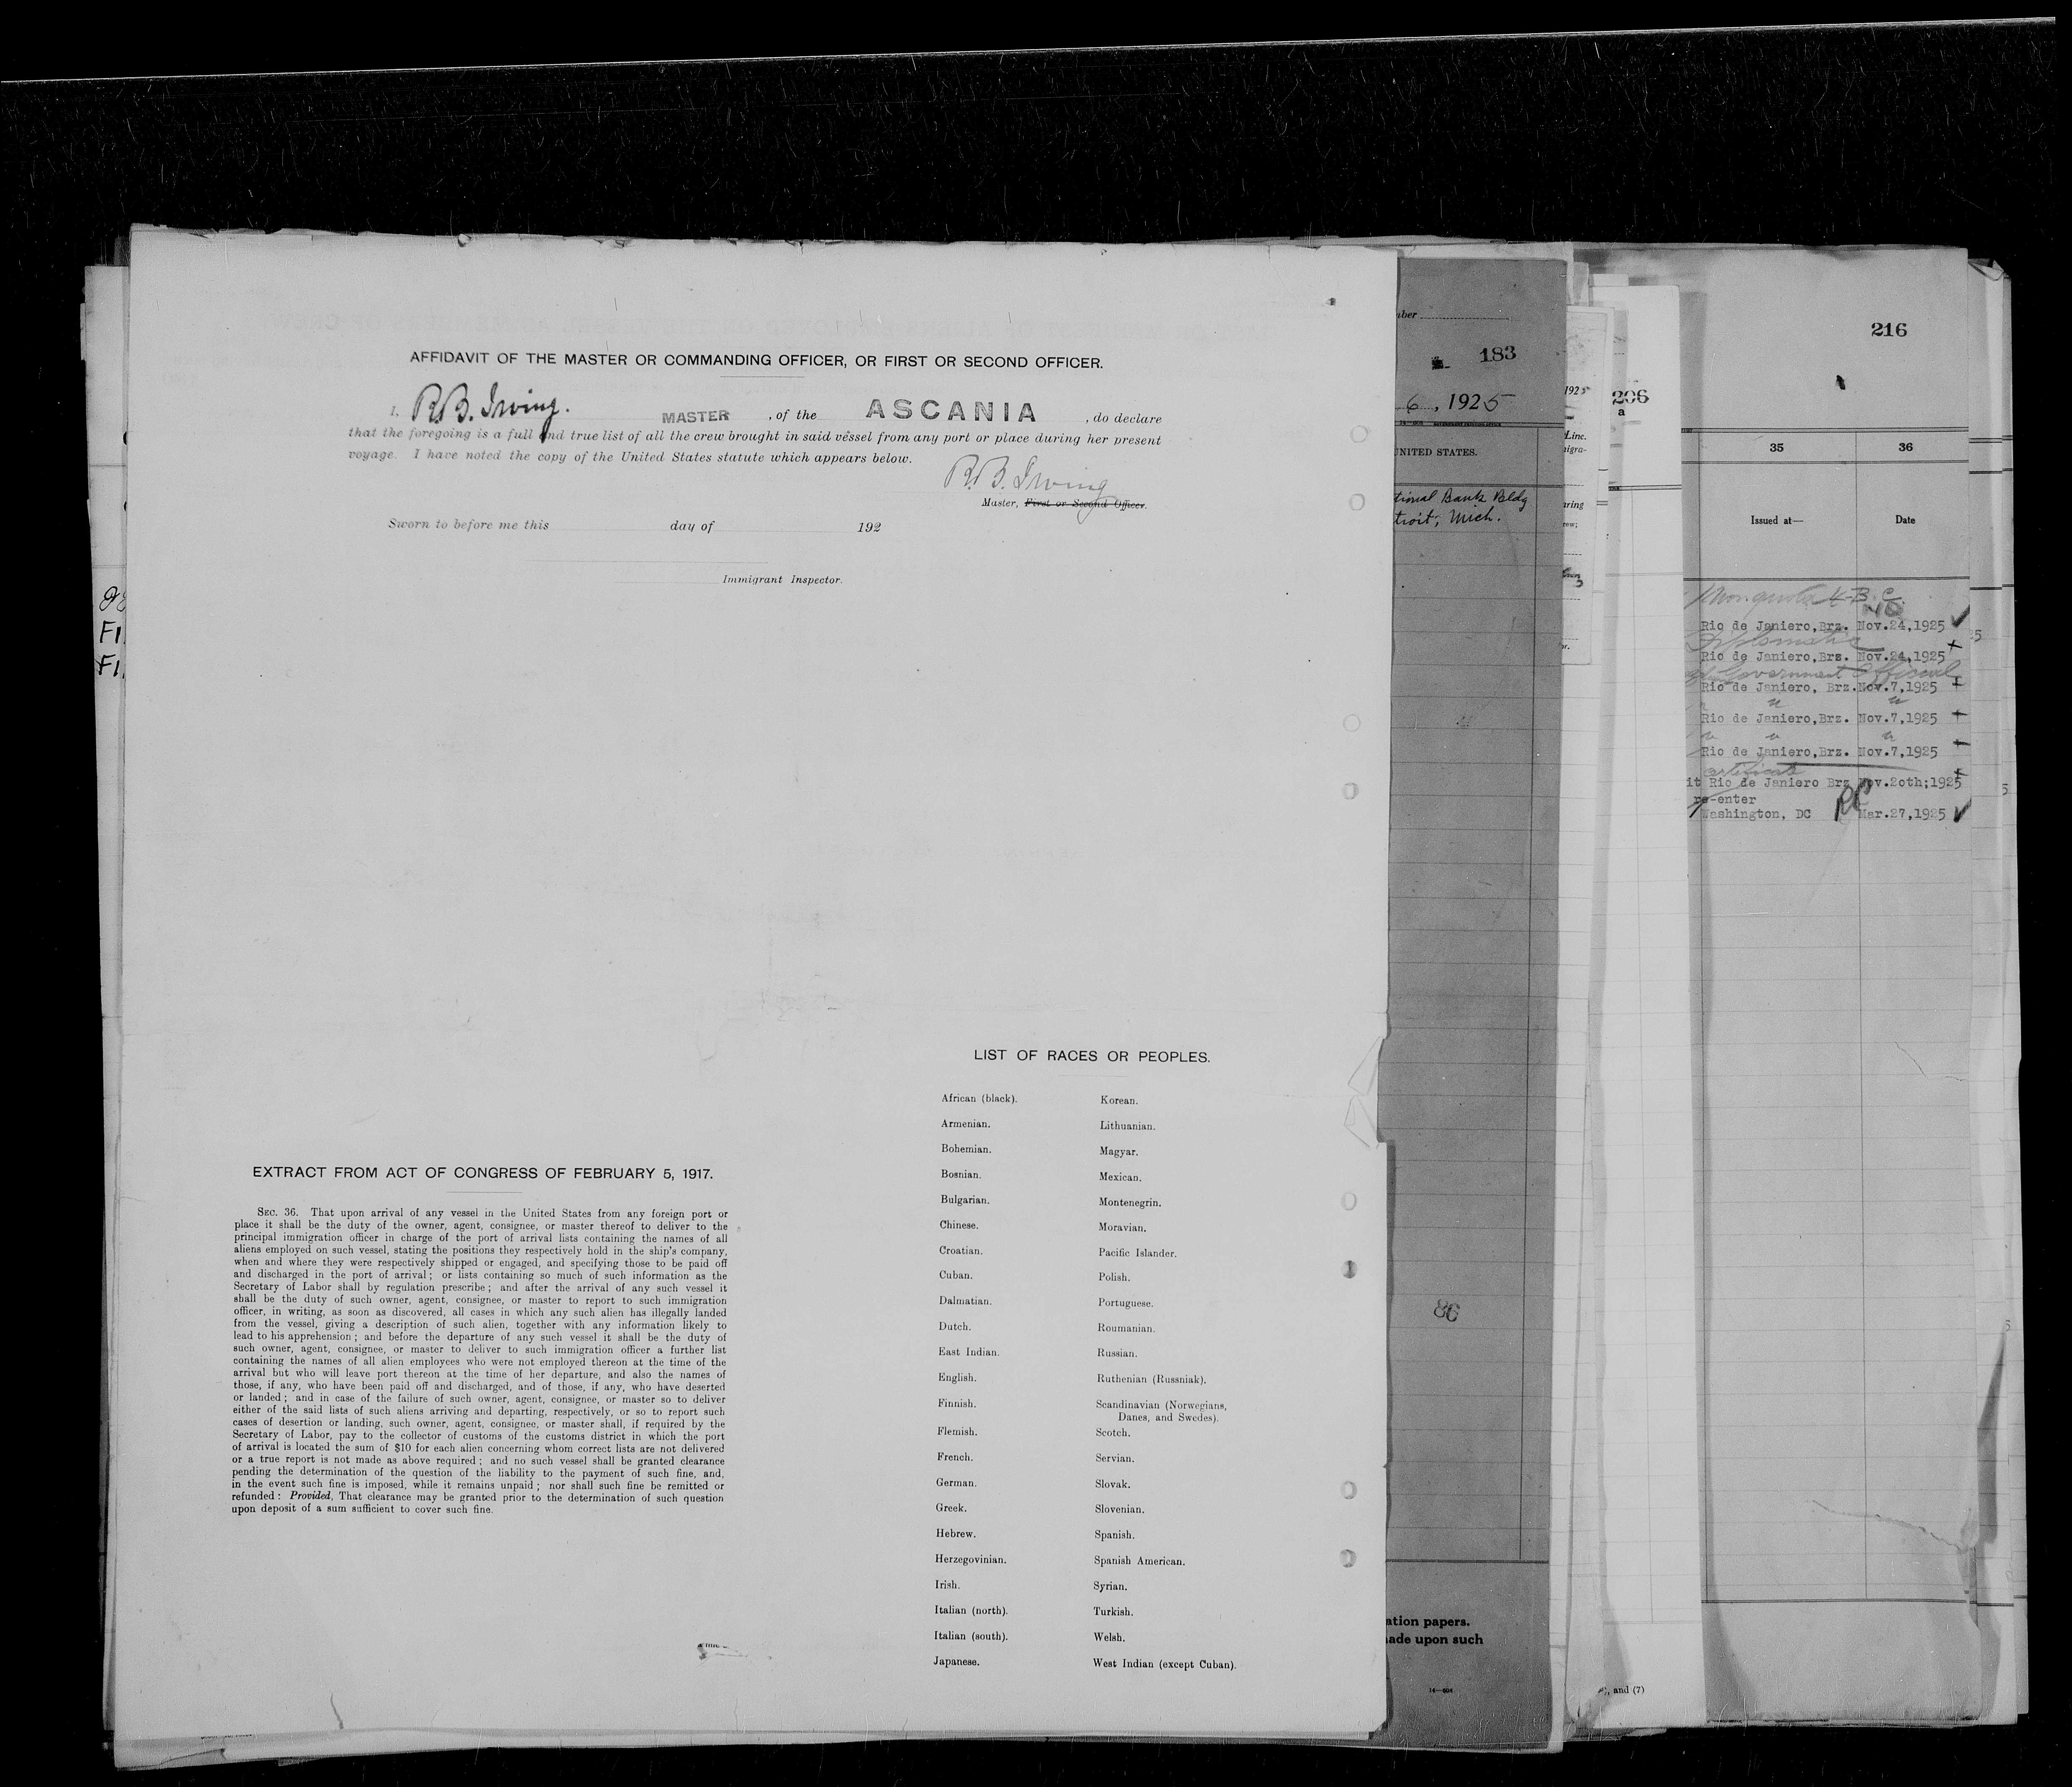 AFFIDAVIT OF THE MASTER OR COMMANDING OFFICER, OR FIRST OR SECOND OFFICER.
I, R.B. Irving. MASTER , of the ASCANIA , do declare
that the foregoing is a full and true list of all the crew brought in said vessel from any port or place during her present
voyage. I have noted the copy of the United States statute which appears below.
R.B. Irving
Master, First or Second Officer.
Sworn to before me this day of 192
Immigrant Inspector.
EXTRACT FROM ACT OF CONGRESS OF FEBRUARY 5, 1917.
SEC. 36. That upon arrival of any vessel in the United States from any foreign port or
place it shall be the duty of the owner, agent, consignee, or master thereof to deliver to the
principal immigration officer in charge of the port of arrival lists containing the names of all
aliens employed on such vessel, stating the positions they respectively hold in the ship's company,
when and where they were respectively shipped or engaged, and specifying those to be paid off
and discharged in the port of arrival; or lists containing so much of such information as the
Secretary of Labor shall by regulation prescribe; and after the arrival of any such vessel it
shall be the duty of such owner, agent, consignee, or master to report to such immigration
officer, in writing, as soon as discovered, all cases in which any such alien has illegally landed
from the vessel, giving a description of such alien, together with any information likely to
lead to his apprehension; and before the departure of any such vessel it shall be the duty of
such owner, agent, consignee, or master to deliver to such immigration officer a further list
containing the names of all alien employees who were not employed thereon at the time of the
arrival but who will leave port thereon at the time of her departure, and also the names of
those, if any, who have been paid off and discharged, and of those, if any, who have deserted
or landed; and in case of the failure of such owner, agent, consignee, or master so to deliver
either of the said lists of such aliens arriving and departing, respectively, or so to report such
cases of desertion or landing, such owner, agent, consignee, or master shall, if required by the
Secretary of Labor, pay to the collector of customs of the customs district in which the port
of arrival is located the sum of $10 for each alien concerning whom correct lists are not delivered
or a true report is not made as above required; and no such vessel shall be granted clearance
pending the determination of the question of the liability to the payment of such fine, and,
in the event such fine is imposed, while it remains unpaid; nor shall such fine be remitted or
refunded: Provided, That clearance may be granted prior to the determination of such question
upon deposit of a sum sufficient to cover such fine.
LIST OF RACES OR PEOPLES.
African (black). Korean.
Armenian. Lithuanian.
Bohemian. Magyar.
Bosnian. Mexican.
Bulgarian. Montenegrin.
Chinese. Moravian.
Croatian. Pacific Islander.
Cuban. Polish.
Dalmatian. Portuguese.
Dutch. Roumanian.
East Indian. Russian.
English. Ruthenian (Russniak).
Finnish. Scandinavian (Norwegians,
Danes, and Swedes).
Flemish. Scotch.
French. Servian.
German. Slovak.
Greek. Slovenian.
Hebrew. Spanish.
Herzegovinian. Spanish American.
Irish. Syrian.
Italian (north). Turkish.
Italian (south). Welsh.
Japanese. West Indian (except Cuban).
183
6, 1925
UNITED STATES.
tional Bank Bldg
troit, Mich.
86
ation papers.
ade upon such
206
a
, and (7)
216
35 36
Issued at— Date
Rio de Janiero,Brz. Nov.24,1925
Diplomatic
Rio de Janiero,Brz. Nov.24,1925
Government Official
Rio de Janiero, Brz. Nov.7,1925
Rio de Janiero,Brz. Nov.7,1925
Rio de Janiero,Brz. Nov.7,1925
it Rio de Janiero Brz Nov.20th;1925
re-enter
Washington, DC Mar.27,1925